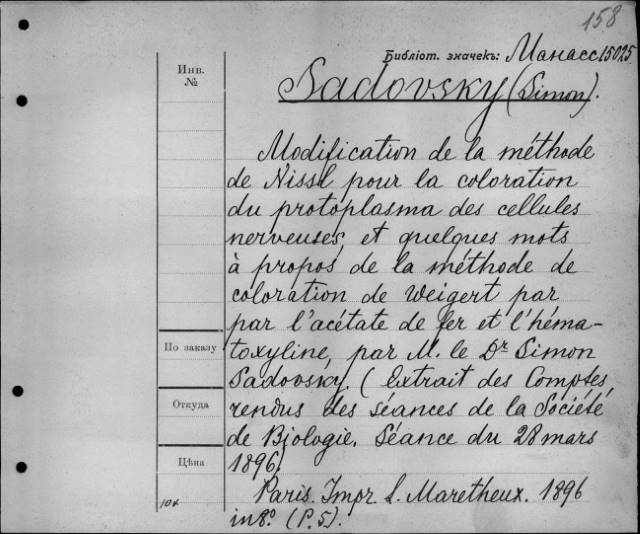 158
Библіот. значекъ: Манасс 15025
Инв. №
Sadovsky (Simon).
Modification de la méthode
de Nissl pour la coloration
du protoplasma des cellules
nerveuses, et quelques mots
à propos de la méthode de
coloration de Weigert par
par l'acétate de fer et l'héma-
toxyline, par M. le Dr Simon
Sadovsky. (Extrait des Comptes
rendus des séances de la Société
de Biologie. Séance du 28 mars
1896)
Paris. Impr L. Maretheux. 1896
in 8º. (P. 5).
По заказу
Откуда
Цѣна